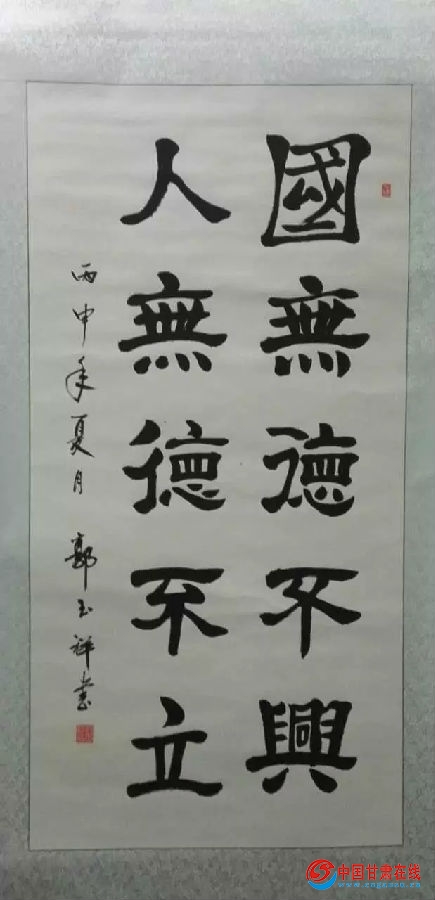 國無德不興
人無德不立
丙申年夏月 郭玉祥書
中国甘肃在线